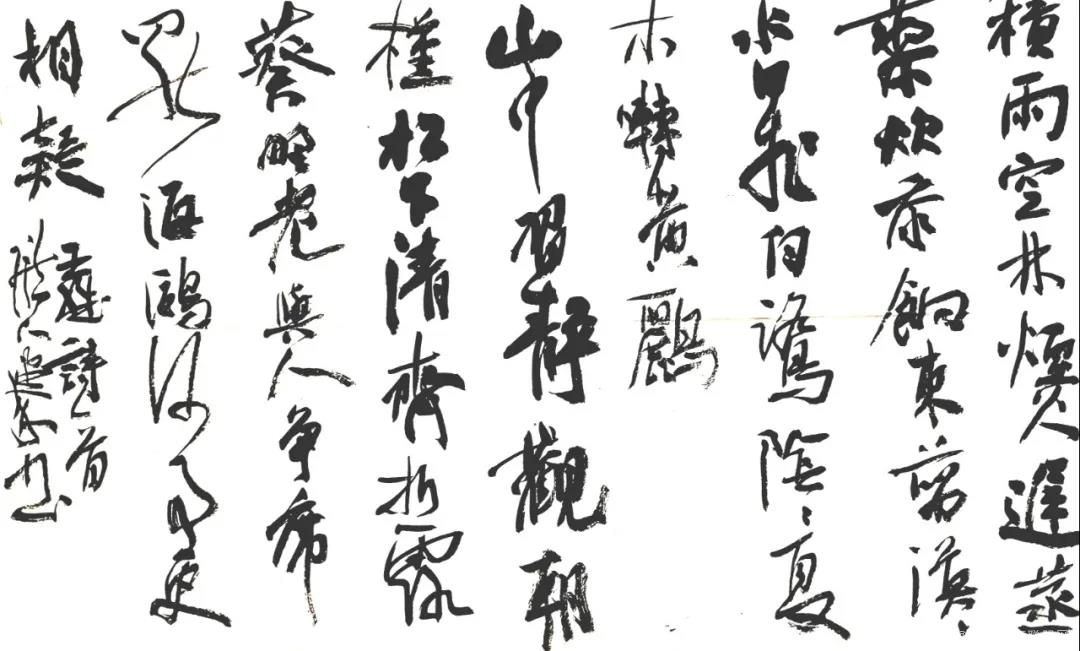 積雨空林煙火遲蒸
藜炊黍餉東菑漠〻
水田飛白鷺陰〻夏
木囀黃鸝
山中習靜觀朝
槿松下清齋折露
葵野老與人爭席
罷海鷗何事更
相疑
王維詩一首
書